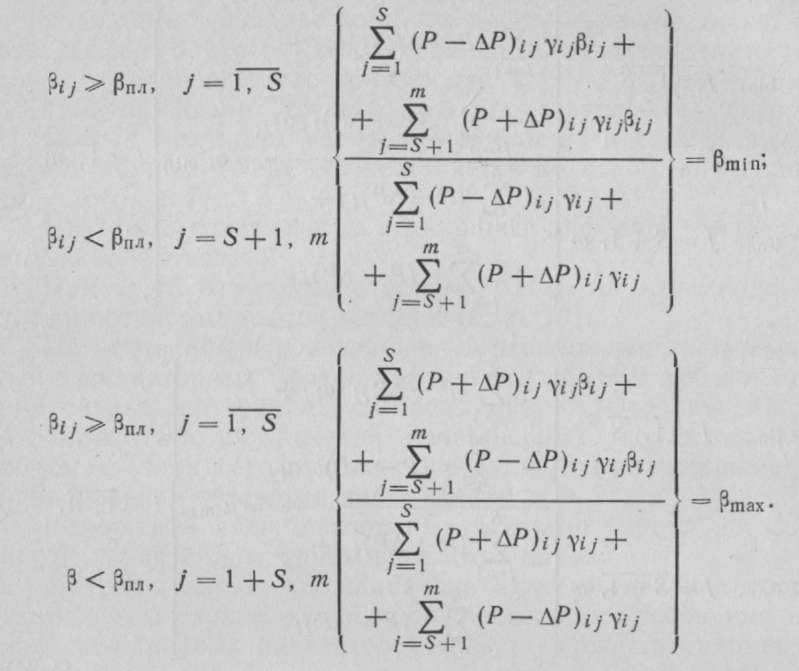 β_{ij} ⩾ β_{пл}, j = \overline{1, S} { \frac{\sum_{j=1}^{S} (P − ΔP)_{ij} γ_{ij} β_{ij} + \sum_{j=S+1}^{m} (P + ΔP)_{ij} γ_{ij} β_{ij}}{\sum_{j=1}^{S} (P − ΔP)_{ij} γ_{ij} + \sum_{j=S+1}^{m} (P + ΔP)_{ij} γ_{ij}} } = β_{min};
β_{ij} < β_{пл}, j = S + 1, m
β_{ij} ⩾ β_{пл}, j = \overline{1, S} { \frac{\sum_{j=1}^{S} (P + ΔP)_{ij} γ_{ij} β_{ij} + \sum_{j=S+1}^{m} (P − ΔP)_{ij} γ_{ij} β_{ij}}{\sum_{j=1}^{S} (P + ΔP)_{ij} γ_{ij} + \sum_{j=S+1}^{m} (P − ΔP)_{ij} γ_{ij}} } = β_{max}.
β < β_{пл}, j = 1 + S, m